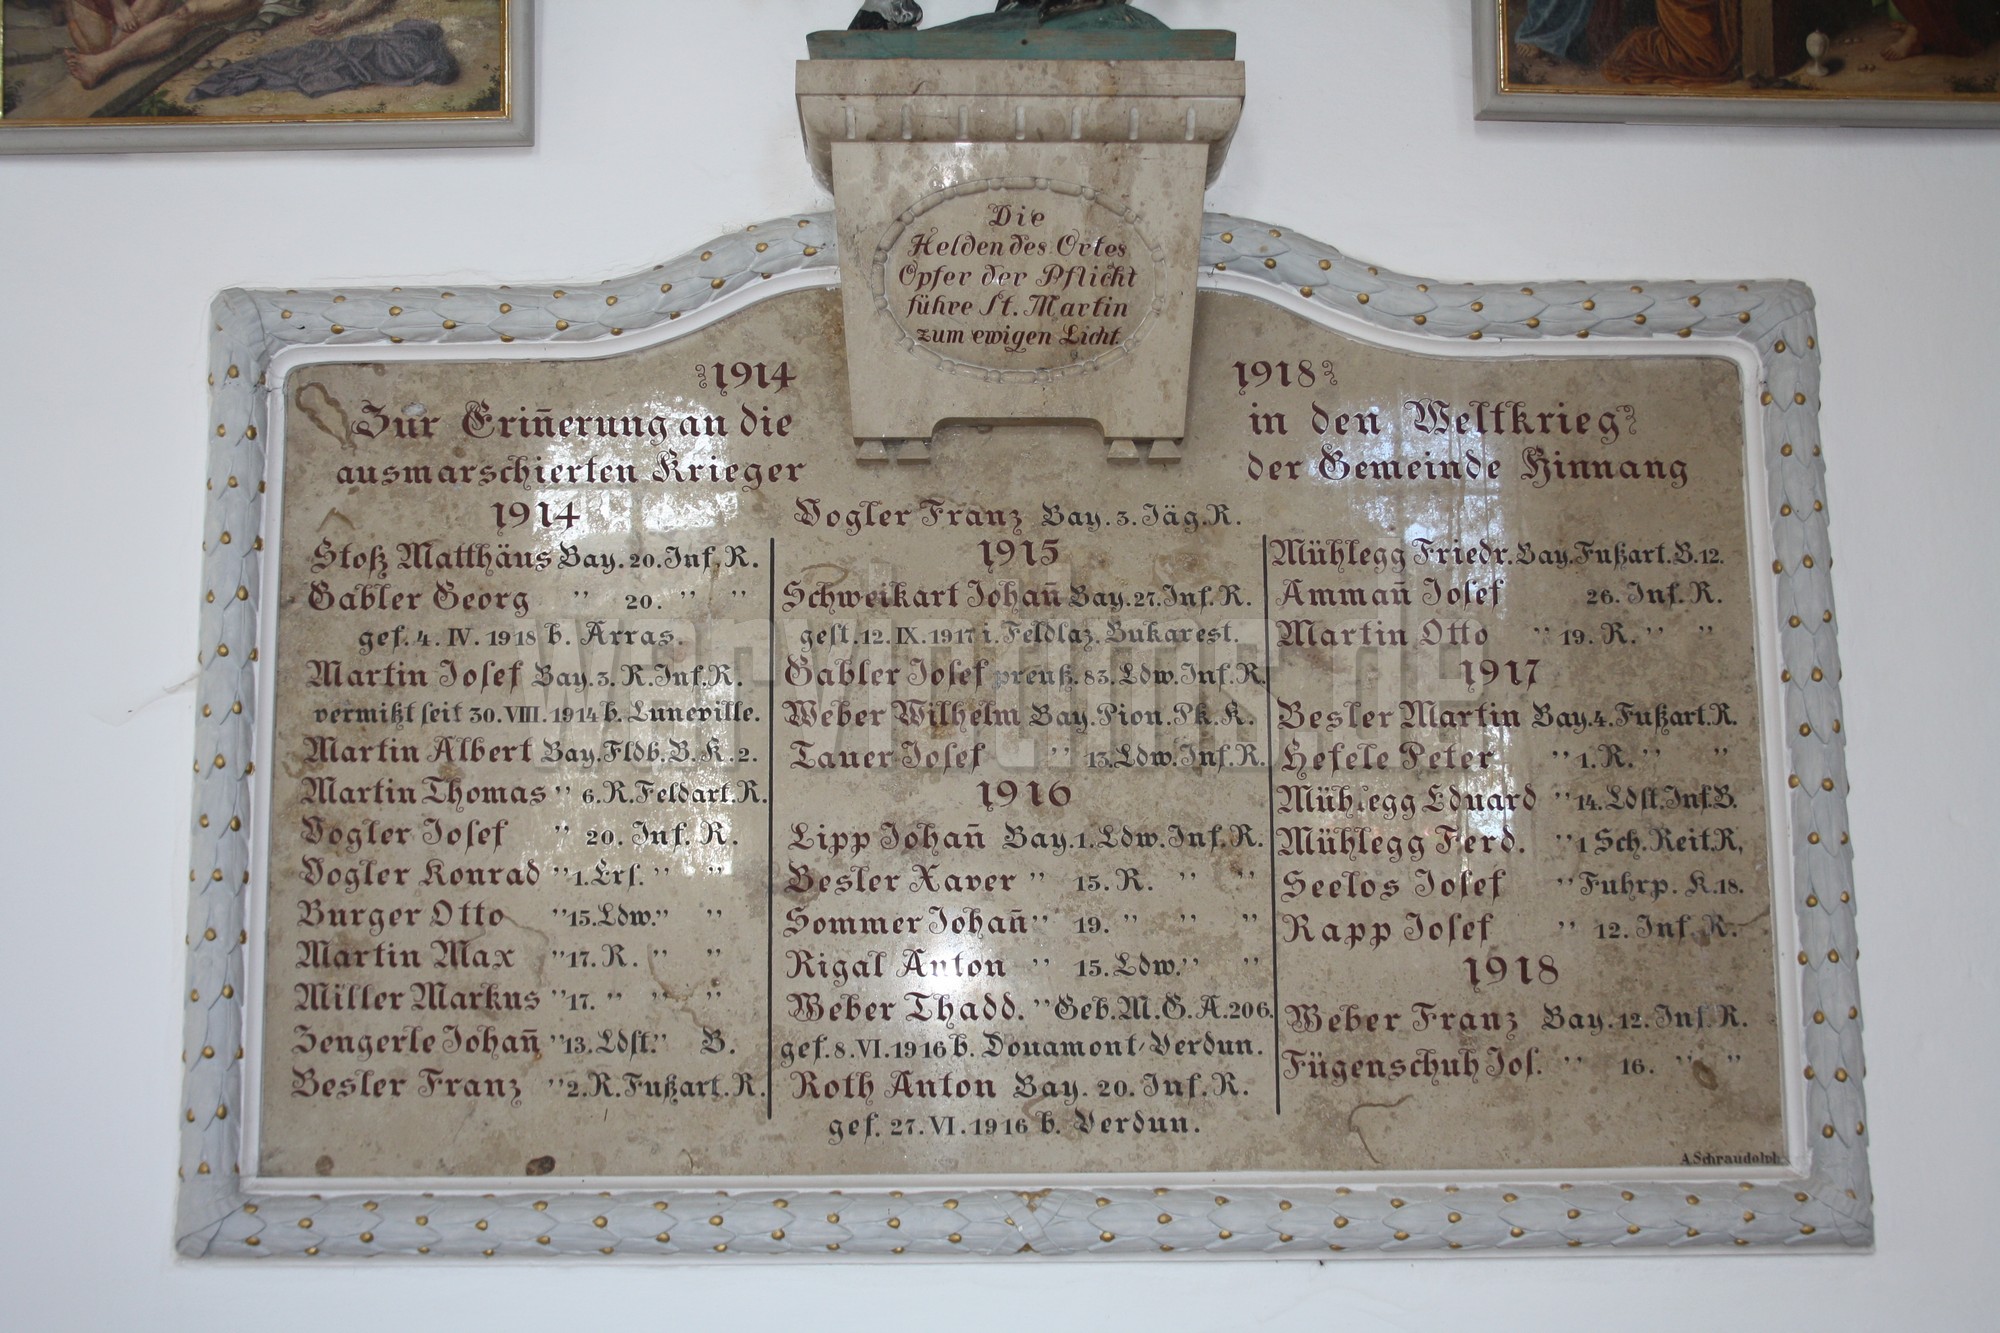 Die
Helden des Ortes
Opfer der Pflicht
führe St. Martin
zum ewigen Licht.
1914 1918
Zur Erin̄erung an die in den Weltkrieg
ausmarschierten Krieger der Gemeinde Hinnang
1914
Stoß Matthäus Bay. 20. Inf. R.
Gabler Georg " 20. " "
gef. 4. IV. 1918 b. Arras.
Martin Josef Bay. 3. R. Inf. R.
vermißt seit 30. VIII. 1914 b. Luneville.
Martin Albert Bay. Fldb. B. K. 2.
Martin Thomas " 6. R. Feldart. R.
Vogler Josef " 20. Inf. R.
Vogler Konrad " 1. Ers. " "
Burger Otto " 15. Ldw. " "
Martin Max " 17. R. " "
Miller Markus " 17. " " "
Zengerle Johan̄ " 13. Ldst. " B.
Besler Franz " 2. R. Fußart. R.
Vogler Franz Bay. 3. Jäg. R.
1915
Schweikart Johan̄ Bay. 27. Inf. R.
gest. 12. IX. 1917 i. Feldlaz. Bukarest.
Gabler Josef preuß. 83. Ldw. Inf. R.
Weber Wilhelm Bay. Pion. Pk. K.
Tauer Josef " 13. Ldw. Inf. R.
1916
Lipp Johan̄ Bay. 1. Ldw. Inf. R.
Besler Xaver " 15. R. " "
Sommer Johan̄ " 19. " " "
Rigal Anton " 15. Ldw. " "
Weber Thadd. " Geb. M. G. A. 206.
gef. 8. VI. 1916 b. Douamont-Verdun.
Roth Anton Bay. 20. Inf. R.
gef. 27. VI. 1916 b. Verdun.
Mühlegg Friedr. Bay. Fußart. B. 12.
Amman̄ Josef 26. Inf. R.
Martin Otto " 19. R. " "
1917
Besler Martin Bay. 4. Fußart. R.
Hefele Peter " 1. R. " "
Mühlegg Eduard " 14. Ldst. Inf. B.
Mühlegg Ferd. " 1 Sch. Reit. R,
Seelos Josef " Fuhrp. K. 18.
Rapp Josef " 12. Inf. R.
1918
Weber Franz Bay. 12. Inf. R.
Fügenschuh Jos. " 16. " "
A. Schraudolph